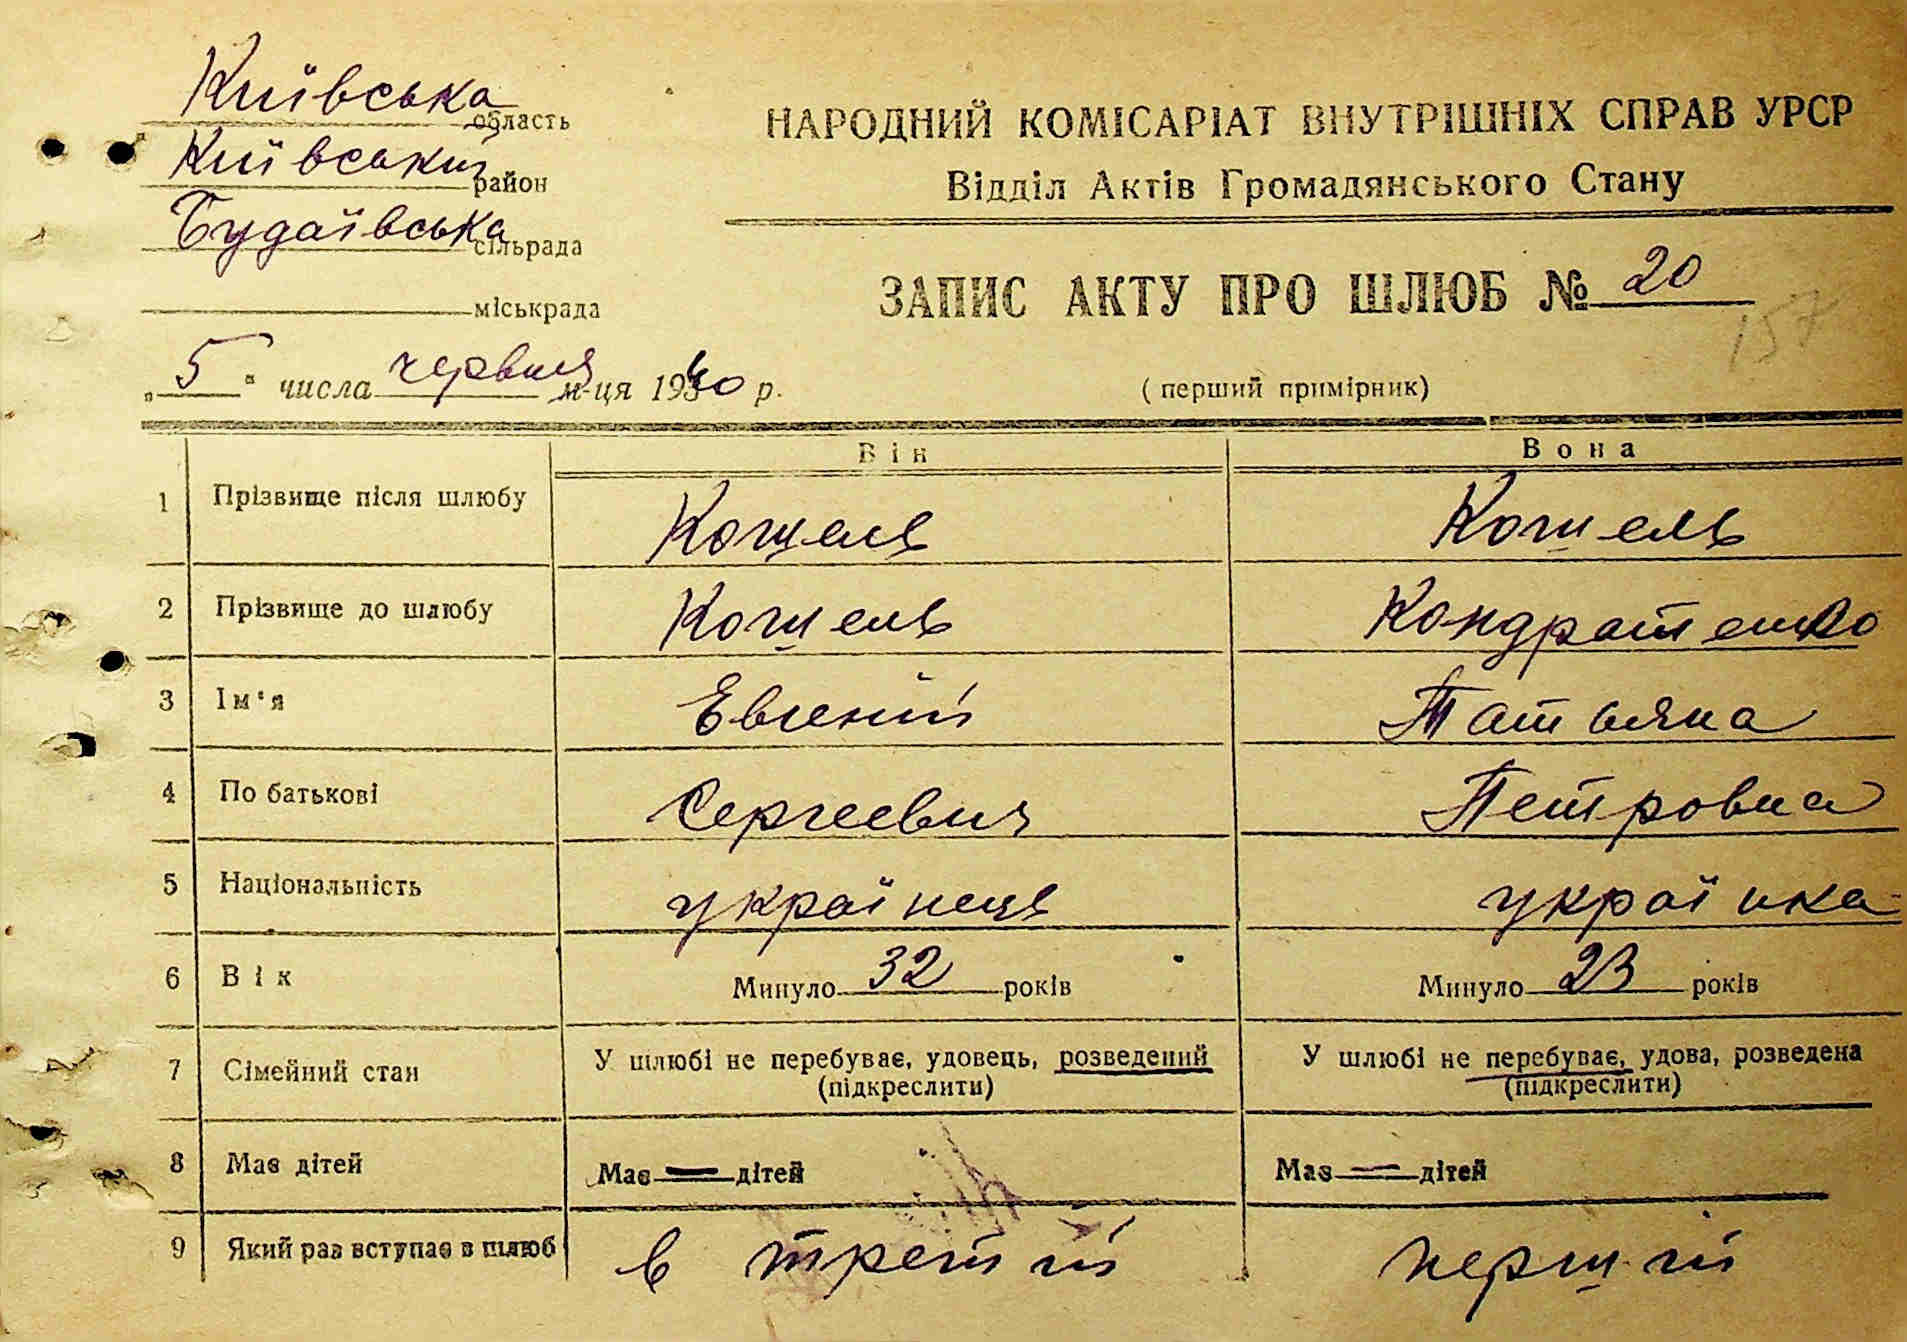 Київська область
Київський район
Будаївська сільрада
міськрада
„5" числа червня м-ця 1940 р.
НАРОДНИЙ КОМІСАРІАТ ВНУТРІШНІХ СПРАВ УРСР
Відділ Актів Громадянського Стану
ЗАПИС АКТУ ПРО ШЛЮБ № 20
157
(перший примірник)
Він Вона
1 Прізвище після шлюбу Кошель Кошель
2 Прізвище до шлюбу Кошель Кондратенко
3 Ім'я Евгеній Татьяна
4 По батькові Сергеевич Петровна
5 Національність українець українка
6 Вік Минуло 32 років Минуло 23 років
7 Сімейний стан У шлюбі не перебуває, удовець, розведений (підкреслити) У шлюбі не перебуває, удова, розведена (підкреслити)
8 Має дітей Має — дітей Має — дітей
9 Який раз вступає в шлюб в третій перший